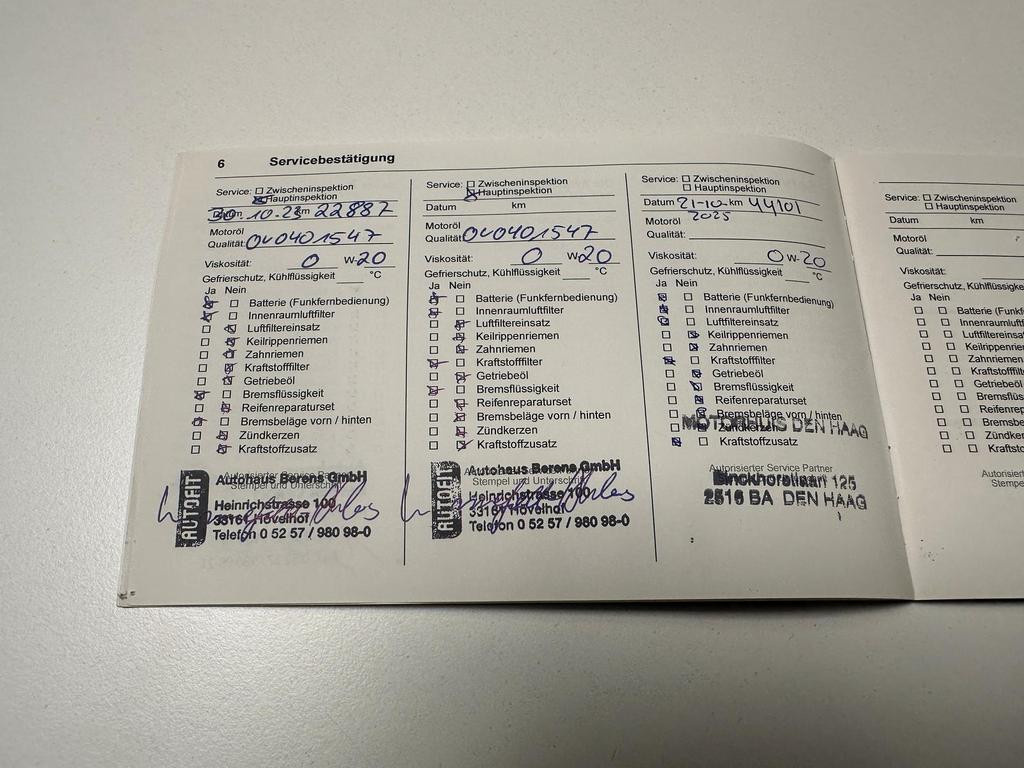 6 Servicebestätigung
Service: Zwischeninspektion
Hauptinspektion
Datum 10.23 km 22887
Motoröl
Qualität: 040401547
Viskosität: 0 W-20
Gefrierschutz, Kühlflüssigkeit °C
Ja Nein
Batterie (Funkfernbedienung)
Innenraumluftfilter
Luftfiltereinsatz
Keilrippenriemen
Zahnriemen
Kraftstofffilter
Getriebeöl
Bremsflüssigkeit
Reifenreparaturset
Bremsbeläge vorn / hinten
Zündkerzen
Kraftstoffzusatz
Autorisierter Service Partner
Stempel und Unterschrift
AUTOFIT
Autohaus Berens GmbH
Heinrichstrasse 100
33161 Hövelhof
Telefon 0 52 57 / 980 98-0
Service: Zwischeninspektion
Hauptinspektion
Datum km
Motoröl
Qualität: 040401547
Viskosität: 0 W-20
Gefrierschutz, Kühlflüssigkeit °C
Ja Nein
Batterie (Funkfernbedienung)
Innenraumluftfilter
Luftfiltereinsatz
Keilrippenriemen
Zahnriemen
Kraftstofffilter
Getriebeöl
Bremsflüssigkeit
Reifenreparaturset
Bremsbeläge vorn / hinten
Zündkerzen
Kraftstoffzusatz
Stempel und Unterschrift
AUTOFIT
Autohaus Berens GmbH
Heinrichstrasse 100
33161 Hövelhof
Telefon 0 52 57 / 980 98-0
Service: Zwischeninspektion
Hauptinspektion
Datum 21-10- km 44101
Motoröl 2025
Qualität:
Viskosität: 0 W-20
Gefrierschutz, Kühlflüssigkeit °C
Ja Nein
Batterie (Funkfernbedienung)
Innenraumluftfilter
Luftfiltereinsatz
Keilrippenriemen
Zahnriemen
Kraftstofffilter
Getriebeöl
Bremsflüssigkeit
Reifenreparaturset
Bremsbeläge vorn / hinten
MOTORHUIS DEN HAAG
Zündkerzen
Kraftstoffzusatz
Autorisierter Service Partner
Binckhorstlaan 125
2516 BA DEN HAAG
Service: Zwischeninspektion
Hauptinspektion
Datum km
Motoröl
Qualität:
Viskosität:
Gefrierschutz, Kühlflüssigke
Ja Nein
Batterie (Funkf
Innenraumluftf
Luftfiltereinsat
Keilrippenriem
Zahnriemen
Kraftstofffilter
Getriebeöl
Bremsflüss
Reifenrepar
Bremsbe
Zündkerz
Kraftstoff